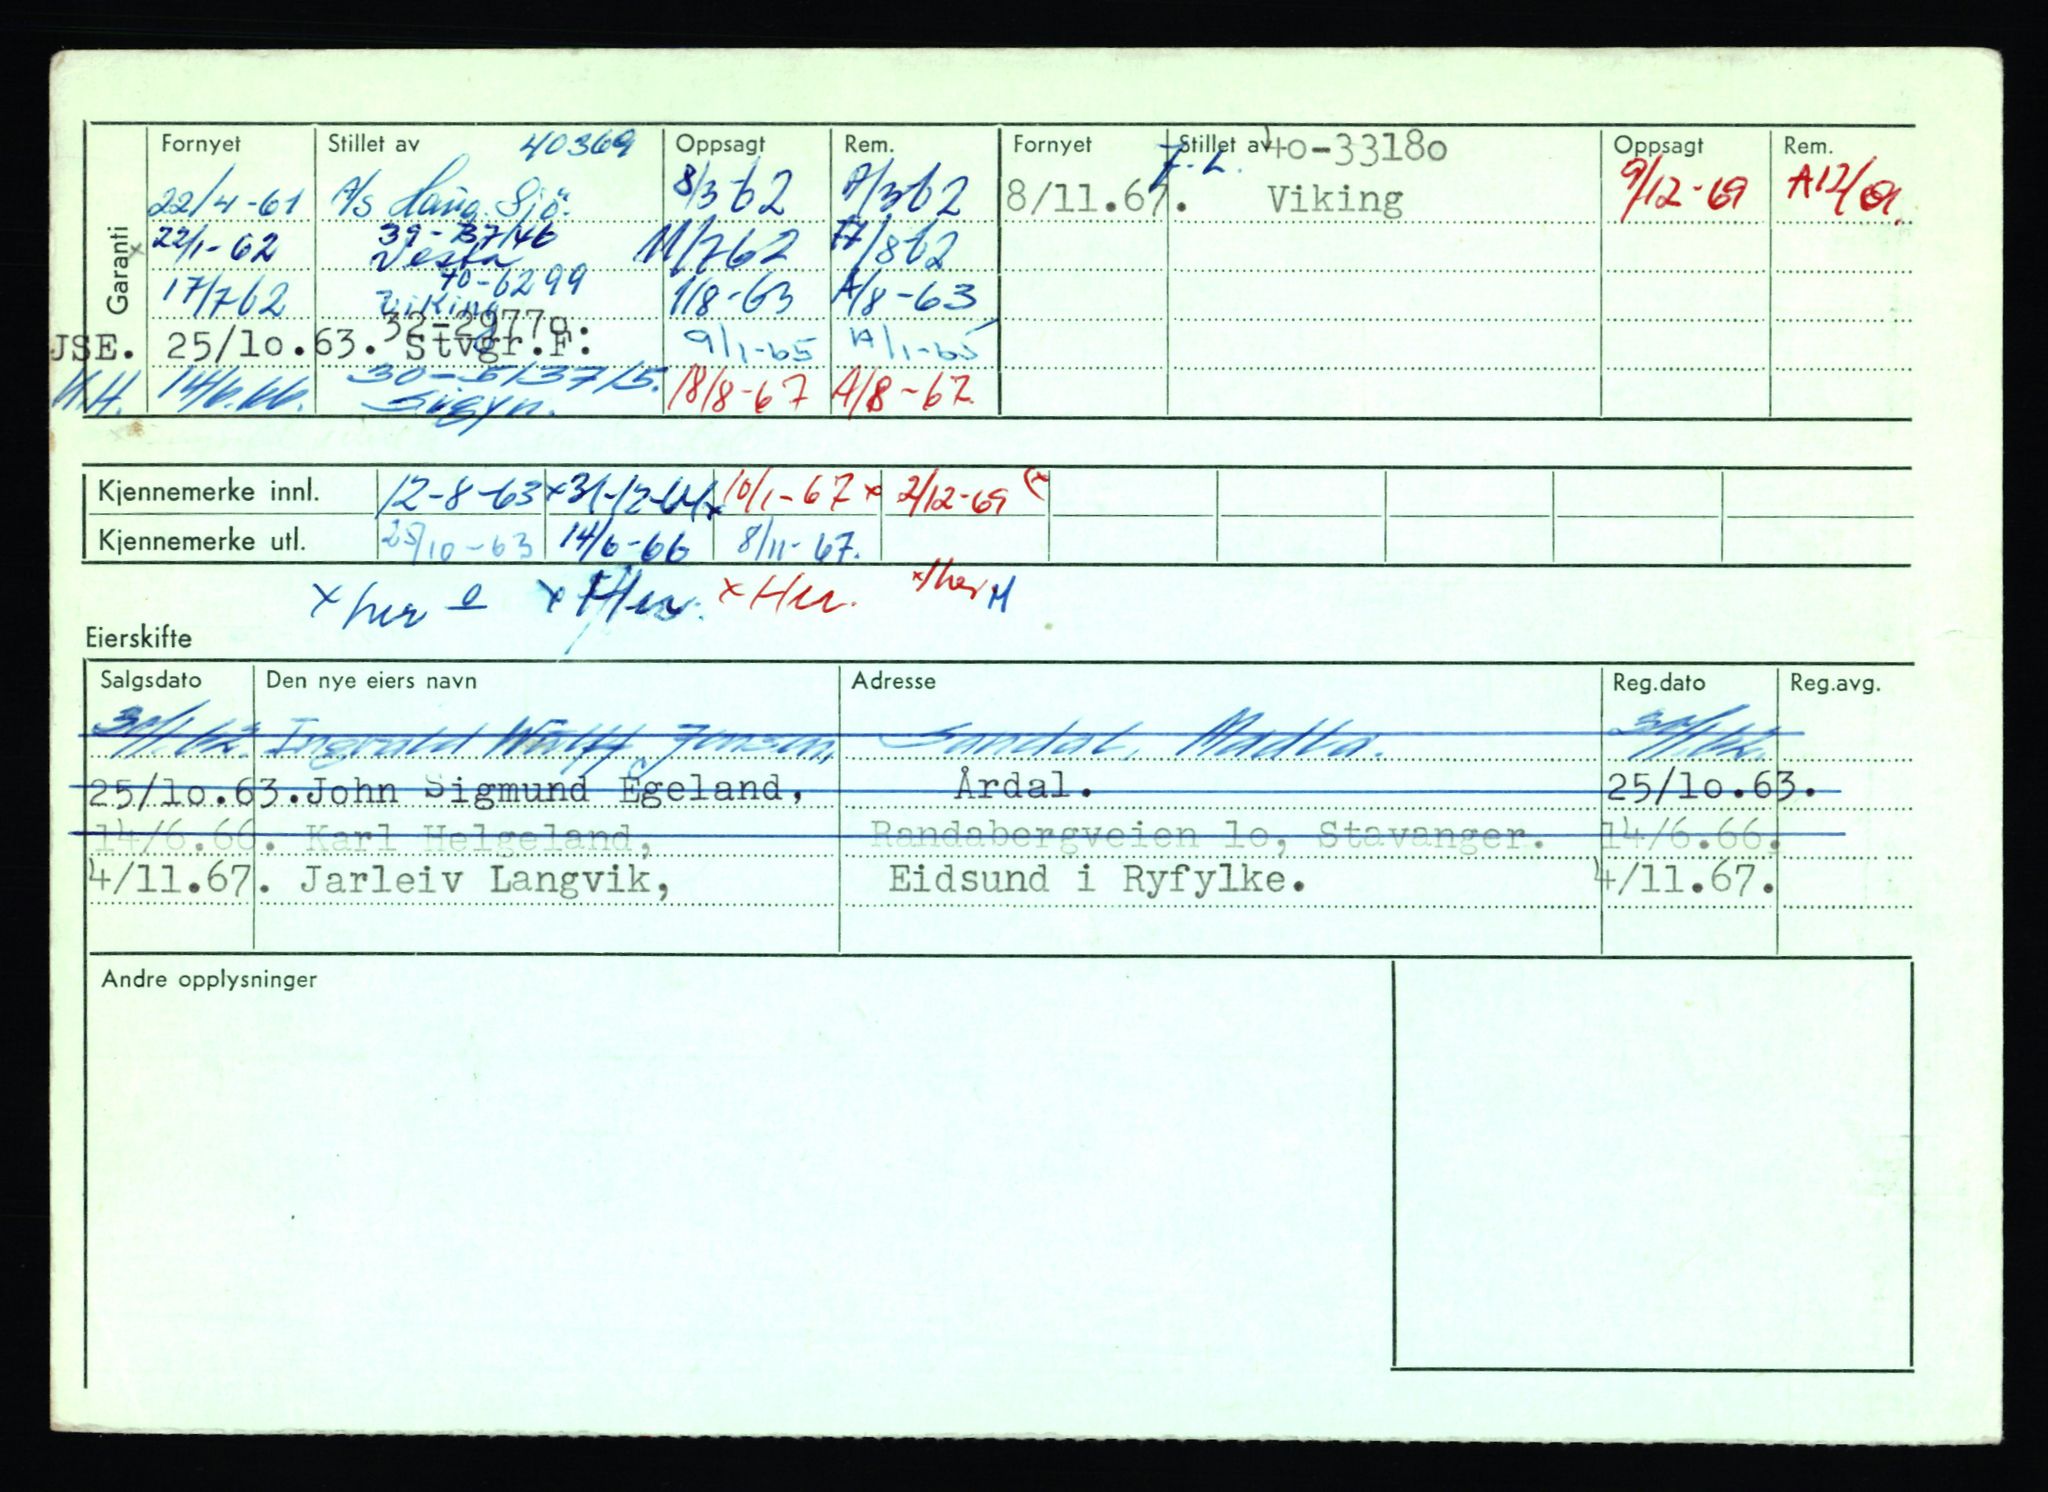 Garanti
Fornyet Stillet av 40369 Oppsagt Rem. Fornyet Stillet av 40-33180 Oppsagt Rem.
22/4-61 A/s Haug. Sjö. 8/3-62 A/3-62 8/11.67. J.L. Viking 9/12-69 A12/69.
x 22/1-62 39-37146 Vesta 11/7 62 A/8 62
17/7 62 40-6299 Viking 1/8-63 A/8-63
JSE. 25/10.63. 32-29770: Stvgr.F: 9/1-65 A/1-65
K.H. 14/6.66. 30-513715. Sigyn. 18/8-67 A/8-67
Kjennemerke innl. 12-8-63 x 31-12-64 x 10/1-67 x 2/12-69 (x
Kjennemerke utl. 25/10-63 14/6-66 8/11-67.
x her x Her. x Her. x her M
Eierskifte
Salgsdato Den nye eiers navn Adresse Reg.dato Reg.avg.
30/1.62. Ingvald Wulff Jensen, Sundal, Madla. 30/1.62.
25/10.63. John Sigmund Egeland, Årdal. 25/10.63.
14/6.66. Karl Helgeland, Randabergveien 10, Stavanger. 14/6.66.
4/11.67. Jarleiv Langvik, Eidsund i Ryfylke. 4/11.67.
Andre opplysninger